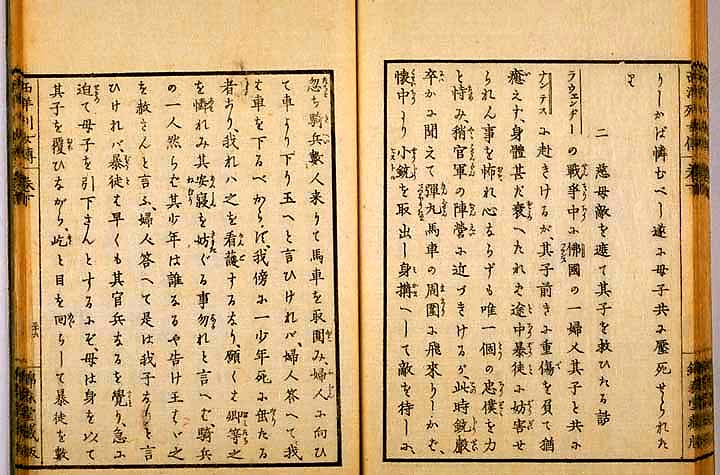 りしかば憐むべし遂に母子共に壓死せられたり
二 慈母敵を遮て其子を救ひたる話
ラウェンダーの戰爭中に佛國の一婦人其子と共に
ナンテスに赴きけるが其子前きに重傷を負て猶
癒えず、身體甚だ衰へたれど途中暴徒に妨害せ
られん事を怖れ心ならずも唯一個の忠僕を力
と恃み、稍官軍の陣營に近づきけるが、此時銃嚴
卒かに聞えて彈丸馬車の周圍に飛來りしかば、
懷中より小銃を取出し身搆へして敵を待しに
忽ち騎兵數人來りて馬車を取圍み、婦人に向ひ
て車より下り玉へと言ひければ、婦人答へて、我
は車を下るべからず、我傍に一少年死に垂たる
者あり、我れハ之を看護するなり、願くは卿等之
を憐れみ其安寢を妨ぐる事勿れと言へば、騎兵
の一人然らば其少年は誰なるや告げ玉はゞ之
を赦さんと言ふ、婦人答へて是は我子なりと言
ひければ暴徒も早くも其官兵なるを覺り、急に
迫て母子を引下さんとするにぞ、母は身を以て
其子を覆ひながら、屹と目を回らして暴徒を數